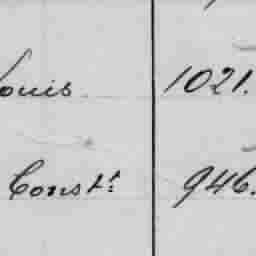 Louis 1021.
Const: 946.